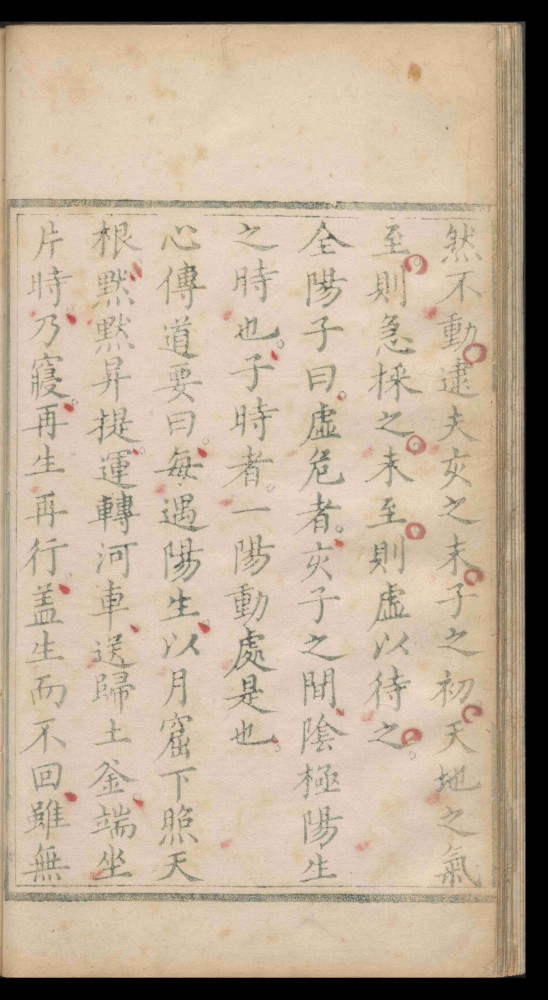 然不動逮夫亥之末子之初天地之氣
至則急採之未至則虛以待之
全陽子曰虛危者亥子之間陰極陽生
之時也子時者一陽動處是也
心傳道要曰每遇陽生以月窟下照天
根默默昇提運轉河車送歸土釜端坐
片時乃寢再生再行蓋生而不回雖無